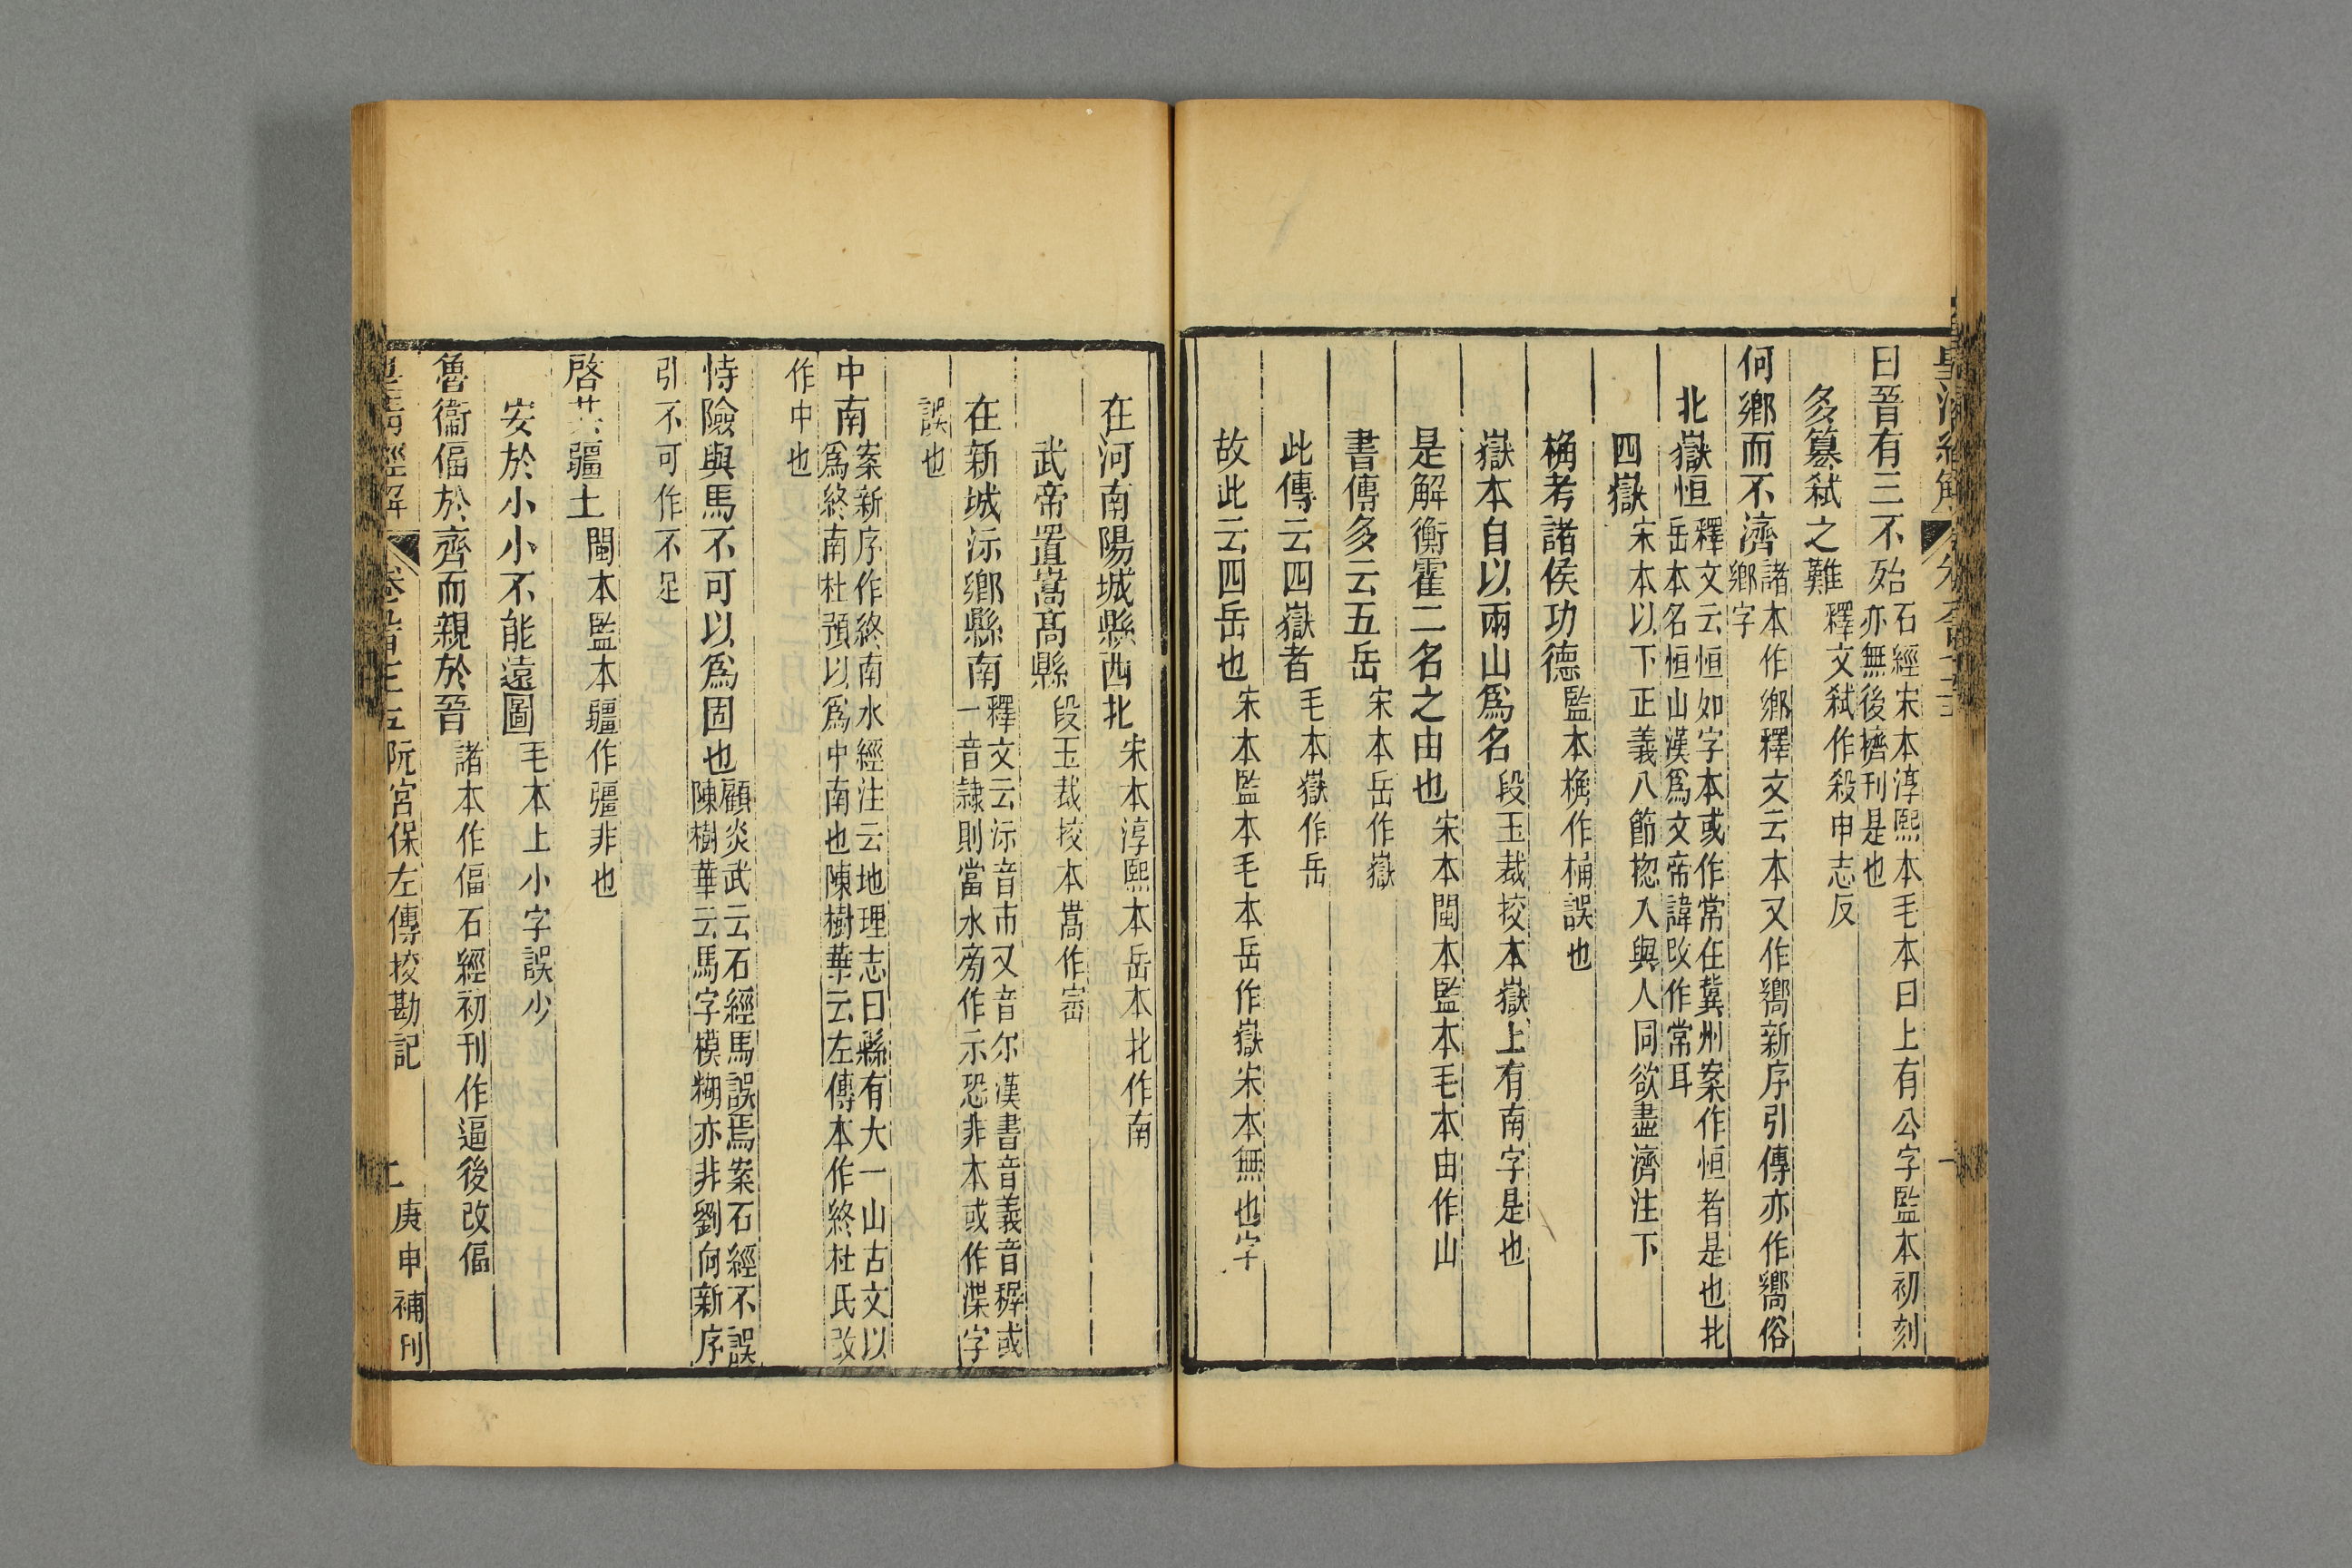 曰晉有三不殆石經宋本淳熙本毛本曰上有公字監本初刻亦無後擠刊是也
多篡弒之難釋文弒作殺申志反
何鄉而不濟諸本作鄉釋文云本又作嚮新序引傳亦作嚮俗鄉字
北嶽恒釋文云恒如字本或作常在冀州案作恒者是也北岳本名恒山漢爲文帝諱改作常耳
四嶽宋本以下正義八節揔入與人同欲盡濟注下
桷考諸侯功德監本桷作桶誤也
嶽本自以兩山爲名段玉裁挍本嶽上有南字是也
是解衡霍二名之由也宋本閩本監本毛本由作山
書傳多云五岳宋本岳作嶽
此傳云四嶽者毛本嶽作岳
故此云四岳也宋本監本毛本岳作嶽宋本無也字
在河南陽城縣西北宋本淳熙本岳本北作南
武帝置嵩高縣段玉裁挍本嵩作崈
在新城沶鄉縣南釋文云沶音市又音尔漢書音義音稺或一音隷則當水旁作示恐非本或作渫字
誤也
中南案新序作終南水經注云地理志曰縣有大一山古文以爲終南杜預以爲中南也陳樹華云左傳本作終杜氏改
作中也
恃險與馬不可以爲固也顧炎武云石經馬誤焉案石經不誤陳樹華云馬字模糊亦非劉向新序
引不可作不足
啓其疆土閩本監本疆作彊非也
安於小小不能遠圖毛本上小字誤少
魯衞偪於齊而親於晉諸本作偪石經初刊作逼後改偪
皇淸經解 阮宮保左傳挍勘記 庚申補刊